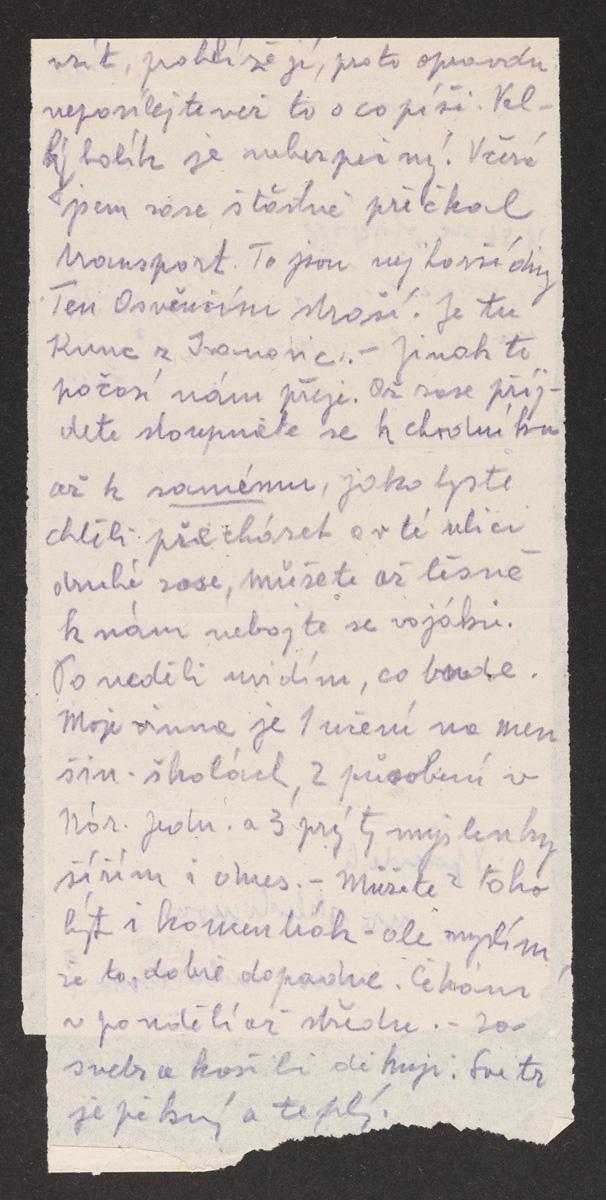 vzít, pohlížejí, proto opravdu
neposílejte než to o co píši. Vel-
ký balík je nebezpečný! Včera
jsem zase šťastně přečkal
transport. To jsou nejhorší dny
Ten Osvěnčim straší. Je tu
Kunc z Ivanovic. – Jinak to
počasí nám přeje. Až zase přij-
dete stoupněte se k chodníku
až k samému, jako byste
chtěli přecházet a v té ulici
druhé zase, můžete až těsně
k nám nebojte se vojáků.
Po neděli uvidím, co bude.
Moje vinna je 1 učení na men
šin. školách, 2 působení v
Nár. Jedn. a 3 prý ty myšlenky
šířím i dnes. – Může z toho
být i koncentrák – ale myslím
že to dobře dopadne. Čekám
v pondělí až středu. – Za
svetr a košili děkuji. Svetr
je pěkný a teplý.